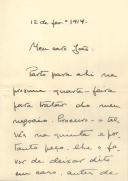 12 de fev.º 1914.
Meu caro João:
Parto para ahi na
proxima quarta-feira
para tratar do meu
negocio. Procuro-o tal-
vez na quinta e por-
tanto peço-lhe o fa-
vor de deixar dito
em casa, antes de